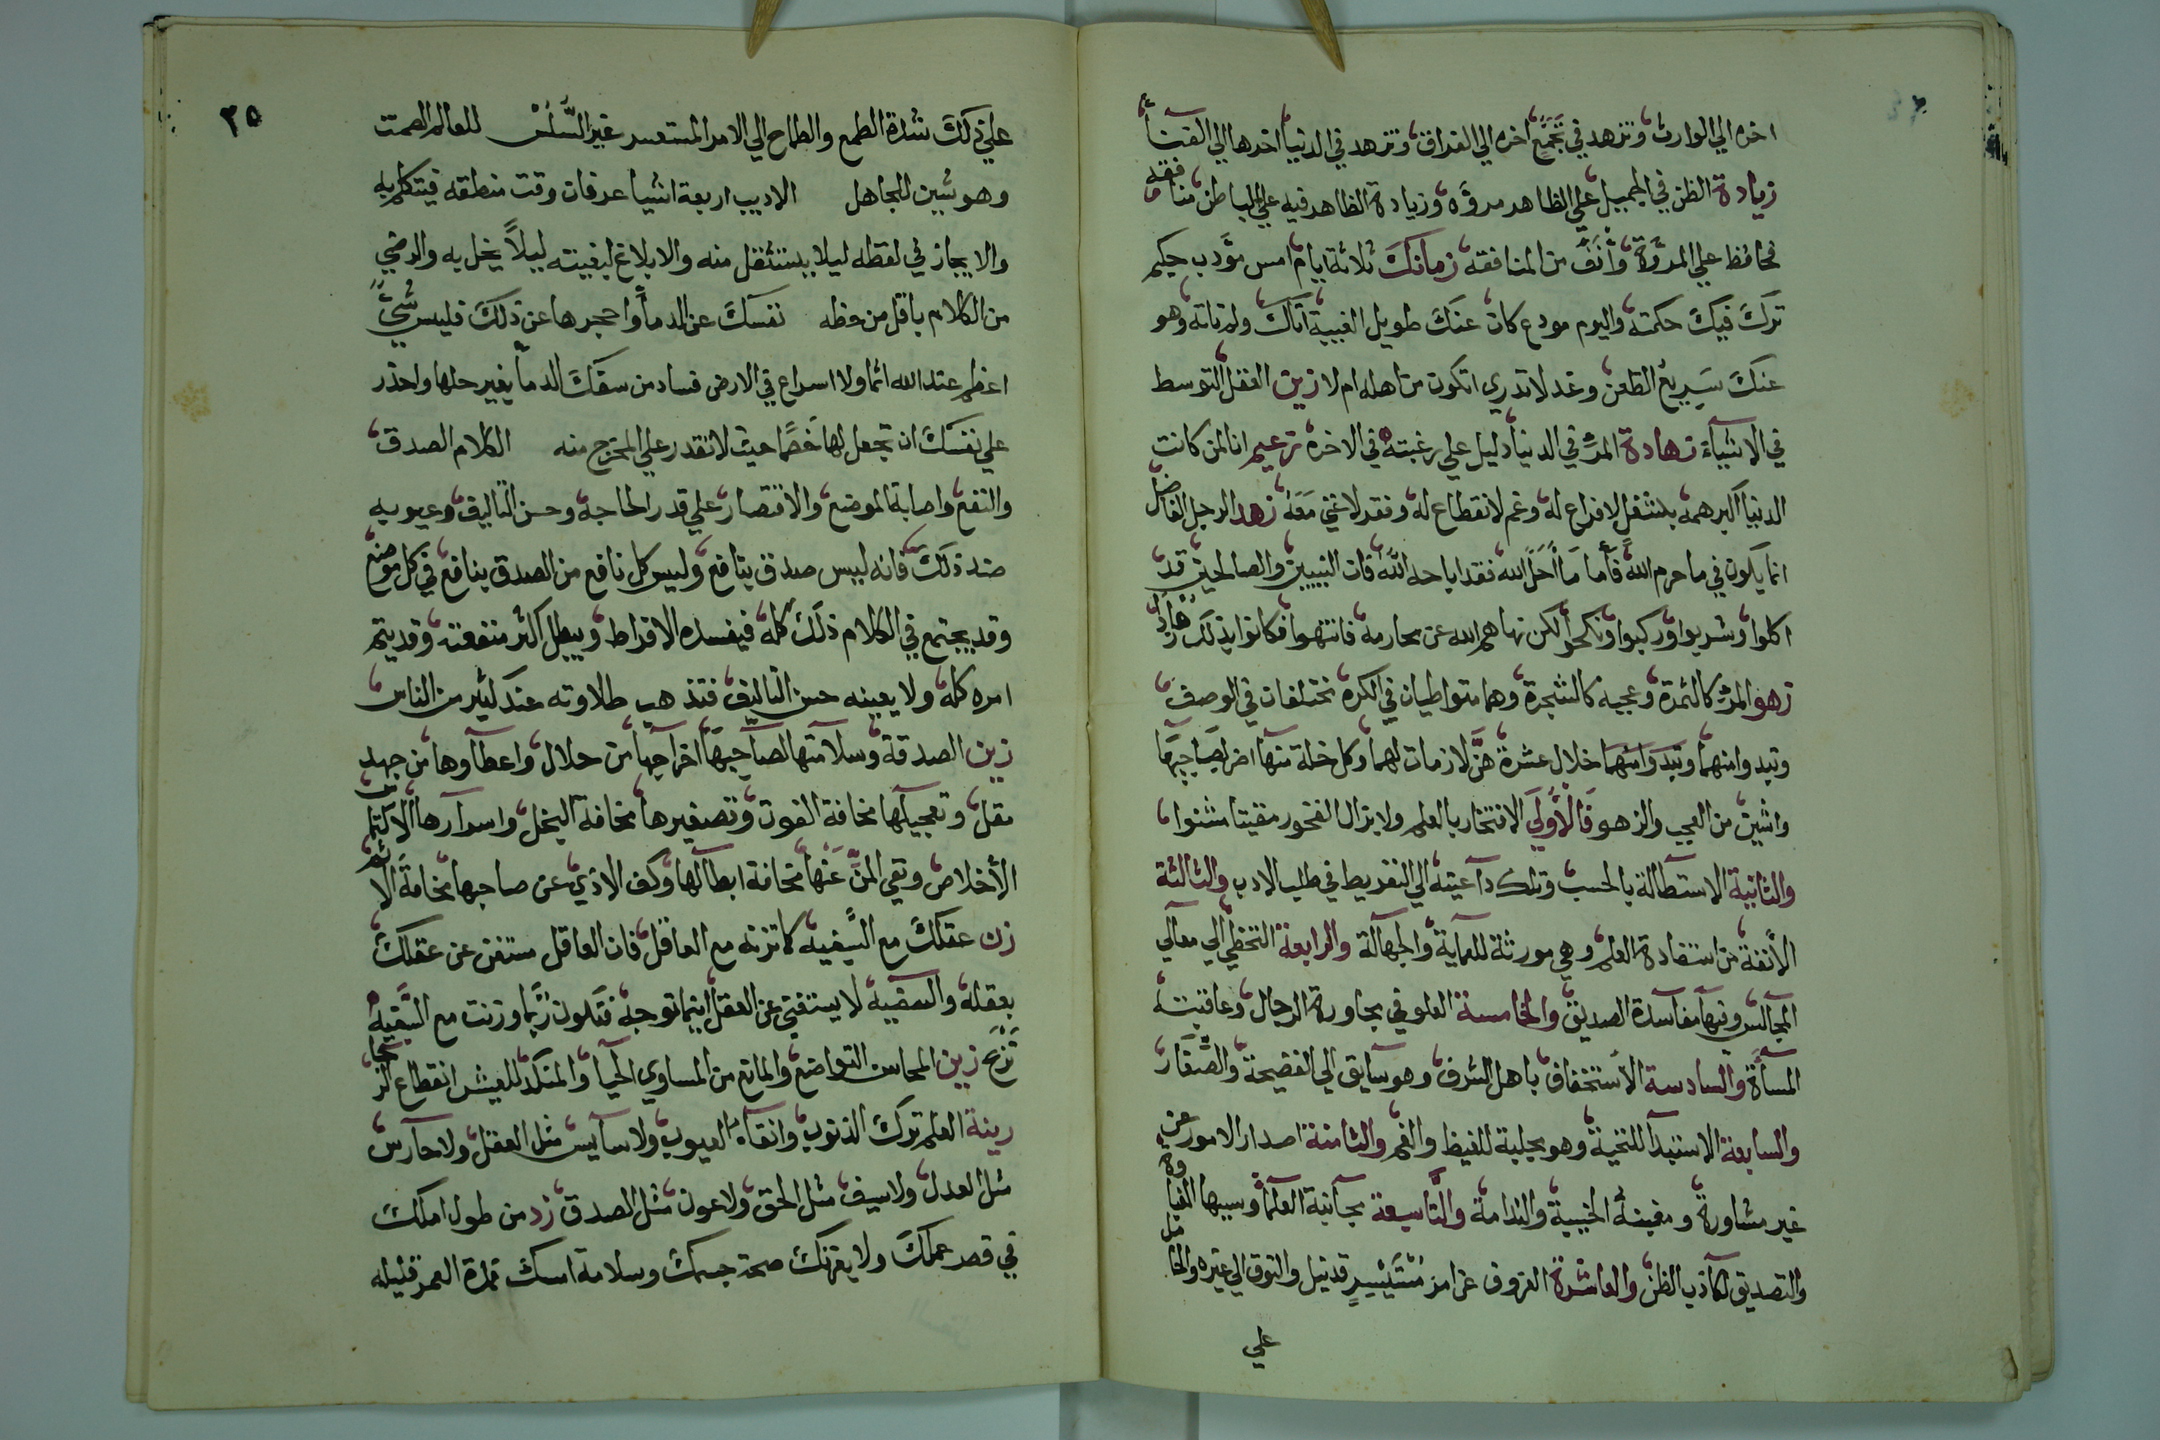 اخره الي الوارث وتزهد في تجمع اخره الي الفراق وتزهد في الدنيا اخرها الي الفنآ
زيادة الظن في الجميل علي الظاهر مروّه وزيادة الظاهر فيه علي الباطن منافقه
فحافظ علي المروّة وأنف من المنافقه زمانك ثلاثة ايام امس مؤدب حكيم
ترك فيك حكمته واليوم مودع كان عنك طويل الغيبة اتاك ولم تاته وهو
عنك سريع الظعن وغد لا تدري اتكون من اهله ام لا زين العقل التوسط
في الاشيآء زهادة المرء في الدنيا دليل علي رغبته في الاخره زعيم انا لمن كانت
الدنيا اكبر همه بشغل لا فراغ له وغم لا نقطاع له وفقد لا غني معَهُ زهد الرجل الفاضل
انما يكون في ما حرم الله فأما ما أحلّ الله فقد اباحه الله فان النبيين والصالحين قد
اكلوا وشربوا وركبوا ونكحوا لكن نهاهم الله عن محارمه فانتهوا فكانوا بذلك زهاد
زهو المرء كالثمرة وعجبه كالشجرة وهما متواطيان في الكره مختلفان في الوصف
وتبدوا منهما خلال عشرة هنّ لازمات لهما وكل خلة منها اضر لصاحبها
واشين من العجب والزهو فالأولي الافتخار بالعلم ولا يزال الفخور مقيتا مشنوا
والثانية الاستطالة بالحسب وتلك داعيته الي التفريط في طلب الادب والثالثة
الأنفة من استفادة العلم وهي مورثة للعماية والجهالة والرابعة التخطي الي معالي
المجالس وفيها مفاسدة الصديق والخامسة العلو في محاورة الرجال وعاقبته
المسأة والسادسة الأستخفاف باهل الشرف وهو سايق الي الفضيحة والصّغار
والسابعة الاستبدآ للنخية وهو مجلبة للغيظ والغم والثامنة اصدار الامور عن
غير مشاورة ومغبته الخيبة والندامة والتّاسعة مجانبة العلمآ وسببها الغباوه
والتصديق لكاذب الظن والعاشرة العزوف عن امر مُتَيسِرٍ قد نيل والتوق الي غيره والحامل
علي
٢٥
علي ذلك شدة الطمع والطماح الي الامر المستعسر غير السَّلسْ للعالم الصمت
وهو شين للجاهل الاديب اربعة اشيا عرفان وقت منطقه فيتكلم به
والايجاز في لفظه ليلا يستثقل منه والابلاغ لبغيته ليلاً يخل به والرضي
من الكلام باقل من حظه نفسك عن الدمآ واحجرها عن ذلك فليس شيء
اعظم عند الله اثما ولا اسراع في الارض فساد من سفك الدما بغير حلها واحذر
علي نفسك ان تجعل لها خصما حيث لا تقدر علي المخرج منه الكلام الصدق
والنفع واصابة الموضع والاقتصار علي قدر الحاجة وحسن التاليف وعيوبه
ضد ذلك فانه ليس صدق بنافع وليس كل نافع من الصدق بنافع في كل موضع
وقد يجتمع في الكلام ذلك كله فيفسده الافراط ويبطل اكثر منفعته وقد يتم
امره كله ولا يعينه حسن التاليف فتذهب طلاوته عند كثير من الناس
زين الصدقة وسلامتها لصاحبها اخراجها من حلال واعطآوها من جهد
مقل وتعجيلها مخافة الفوت وتصغيرها مخافة البخل واسرارها لالتماس
الأخلاص ونفي المنّ عَنها مخافة ابطالها وكف الاذي عن صاحبها مخافة الاثم
زن عقلك مع السَّفيه كما تزنه مع العاقل فان العاقل مستغن عن عقلك
بعقله والسفيه لا يستغني عن العقل اينما توجه فتكون ربّما وزنت مع السَّفيه
تزع زين المحاسن التواضع والمانع من المساوي الحيا والمنكد للعيش انقطاع الرجا
زينة العلم ترك الذنوب وانقآء العيوب ولا سآيس مثل العقل ولا حارس
مثل العدل ولا سيف مثل الحق ولا عون مثل الصدق زد من طول املك
في قصر عملك ولا يغرنك صحة جسمك وسلامة امسك فمدة العمر قليله